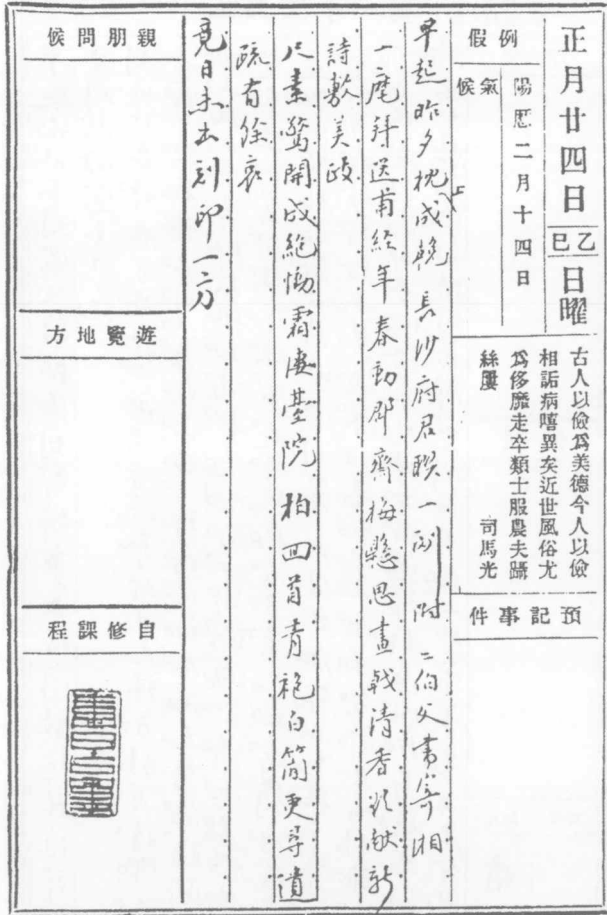 正月廿四日 乙巳 日曜
例假
陽曆二月十四日
氣候
古人以儉爲美德今人以儉
相詬病嘻異矣近世風俗尤
爲侈靡走卒類士服農夫躡
絲履 司馬光
預記事件
早起昨夕枕上成輓長沙府君聯一副附二伯父書寄湘
一麾拜送甫經年春動郡齋梅懸思畫戟清香欲獻新
詩敷美政
尺素驚開成絶慟霜凄臺院柏回首青袍白簡更尋遺
疏有餘哀
竟日未出刻印一方
親朋問候
遊覽地方
自修課程